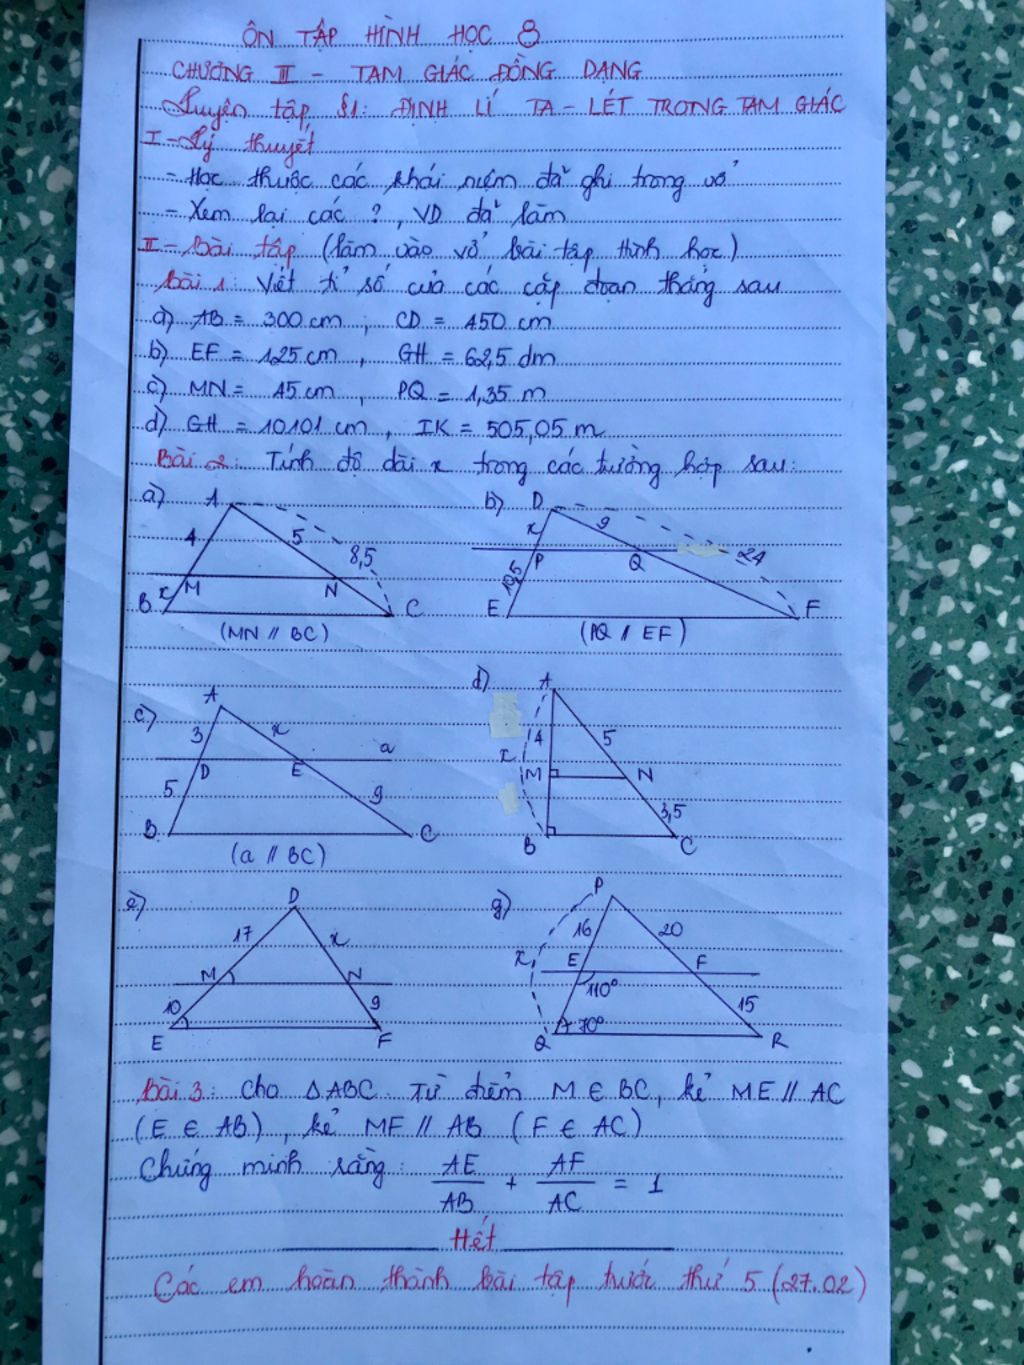 ÔN TẬP HÌNH HỌC 8
CHƯƠNG III - TAM GIÁC ĐỒNG DẠNG
Luyện tập §1: ĐỊNH LÍ TA-LÉT TRONG TAM GIÁC
I - Lý thuyết
- Học thuộc các khái niệm đã ghi trong vở
- Xem lại các ?, VD đã làm
II - Bài tập (làm vào vở bài tập hình học)
Bài 1: Viết tỉ số của các cặp đoạn thẳng sau
a) AB = 300 cm ; CD = 450 cm
b) EF = 125 cm , GH = 62,5 dm
c) MN = 45 cm , PQ = 1,35 m
d) GH = 10101 cm , IK = 505,05 m
Bài 2: Tính độ dài x trong các trường hợp sau:
a) A 4 5 8,5 x M N B C
(MN // BC)
b) D x 9 24 P Q 10,5 E F
(PQ // EF)
c) A 3 x a D E 5 9 B C
(a // BC)
d) A 4 5 x M N 3,5 B C
e) D 17 x M N 10 9 E F
g) P 16 20 x E F 110° 15 70° Q R
Bài 3: Cho ΔABC. Từ điểm M ∈ BC, kẻ ME // AC
(E ∈ AB), kẻ MF // AB (F ∈ AC)
Chứng minh rằng: AE/AB + AF/AC = 1
Hết
Các em hoàn thành bài tập trước thứ 5 (27.02)